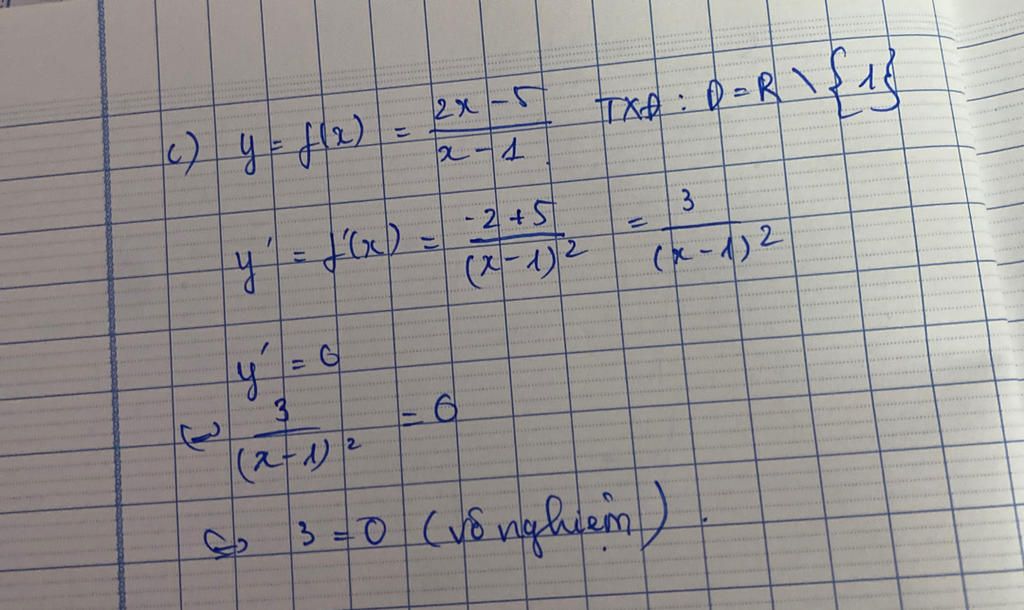 c) y = f(x) = (2x - 5)/(x - 1) TXĐ : D = R \ {1}
y' = f'(x) = (-2 + 5)/(x - 1)² = 3/(x - 1)²
y' = 0
⇔ 3/(x - 1)² = 0
⇔ 3 = 0 (vô nghiệm).